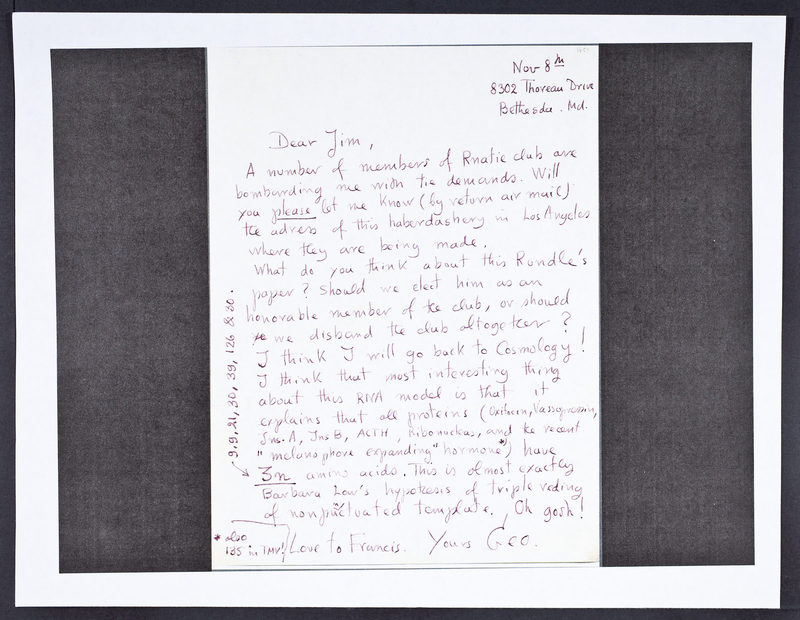 Nov 8th
8302 Thoreau Drive
Bethesda. Md.
Dear Jim,
A number of members of Rnatie club are
bombarding me with tie demands. Will
you please let me know (by return air mail)
the adress of this haberdashery in Los Angeles
where they are being made.
What do you think about this Rundle's
paper? Should we elect him as an
honorable member of the club, or should
we disband the club altogether?
I think I will go back to Cosmology!
I think that most interesting thing
about this RNA model is that it
explains that all proteins (Oxitocin, Vassopressin,
Ins. A, Ins B, ACTH, Ribonucleas, and the recent
"melanophore expanding" hormone*) have
3n amino acids. This is almost exactly
Barbara Low's hypotesis of triple reding
of nonpunctuated template. Oh gosh!
Love to Francis. Yours Geo.
9,9,21,30,39,126 & 30.
* also
135 in TMV!